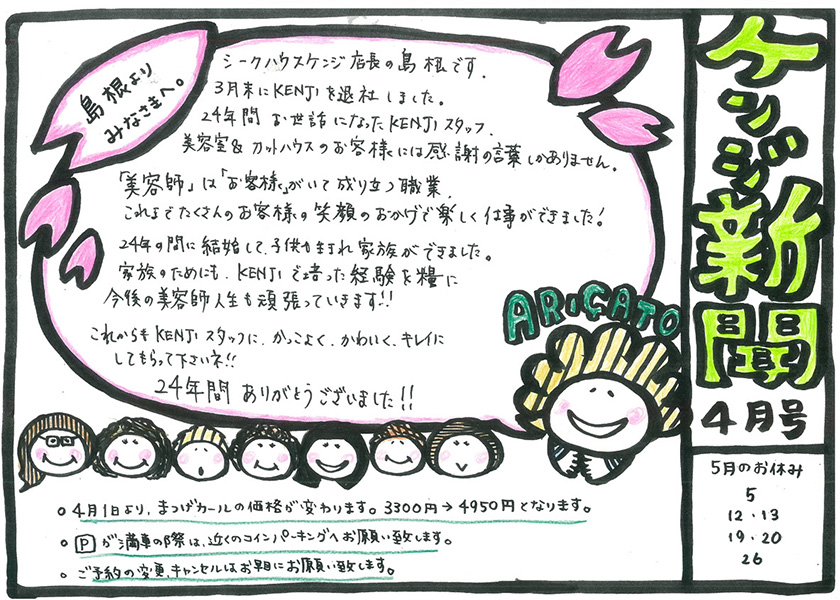 ケンジ新聞
4月号
島根より
みなさまへ。
シークハウスケンジ店長の島根です.
3月末にKENJIを退社しました。
24年間お世話になったKENJIスタッフ.
美容室&カットハウスのお客様には感謝の言葉しかありません。
「美容師」は「お客様」がいて成り立つ職業.
これまでたくさんのお客様の笑顔のおかげで楽しく仕事ができました!
24年の間に結婚して、子供も生まれ家族ができました。
家族のためにも、KENJIで培った経験を糧に
今後の美容師人生も頑張っていきます!!
これからもKENJIスタッフに、かっこよく、かわいく、キレイに
してもらって下さいネ!!
24年間 ありがとうございました!!
ARIGATO
○ 4月1日より、まつげカールの価格が変わります。3300円→4950円となります。
○ P が満車の際は、近くのコインパーキングへお願い致します。
○ ご予約の変更、キャンセルはお早目にお願い致します。
5月のお休み
5
12・13
19・20
26